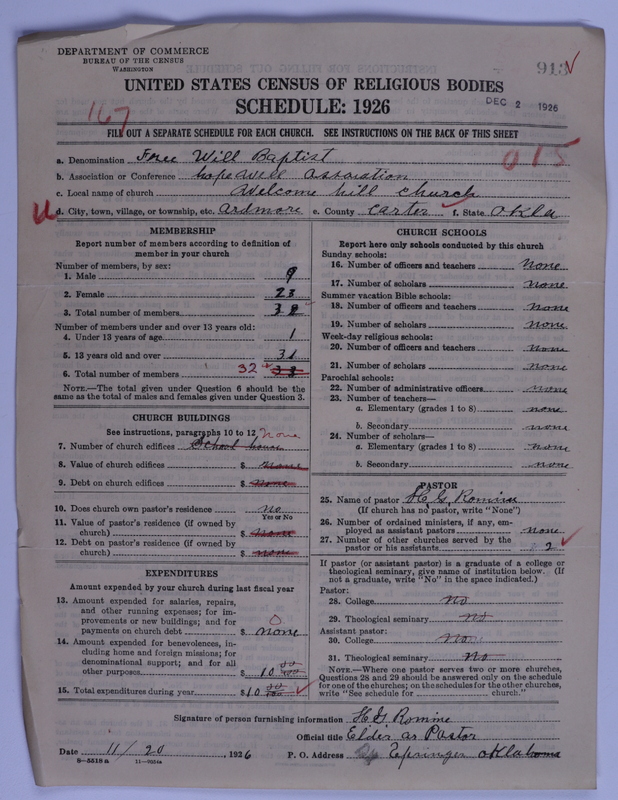 DEPARTMENT OF COMMERCE
BUREAU OF THE CENSUS
WASHINGTON
913
UNITED STATES CENSUS OF RELIGIOUS BODIES
SCHEDULE: 1926
DEC 2 1926
167
FILL OUT A SEPARATE SCHEDULE FOR EACH CHURCH. SEE INSTRUCTIONS ON THE BACK OF THIS SHEET
015
a. Denomination Free Will Baptist
b. Association or Conference hopewell association
c. Local name of church Welcome hill church
d. City, town, village, or township, etc. ardmore e. County Carter f. State Okla
MEMBERSHIP
Report number of members according to definition of member in your church
Number of members, by sex:
1. Male 9
2. Female 23
3. Total number of members 32
Number of members under and over 13 years old:
4. Under 13 years of age 1
5. 13 years old and over 31
6. Total number of members 32
NOTE.—The total given under Question 6 should be the
same as the total of males and females given under Question 3.
CHURCH BUILDINGS
See instructions, paragraphs 10 to 12 none
7. Number of church edifices School house
8. Value of church edifices $ none
9. Debt on church edifices $ none
10. Does church own pastor's residence no
Yes or No
11. Value of pastor's residence (if owned by
church) $ none
12. Debt on pastor's residence (if owned by
church) $ none
EXPENDITURES
Amount expended by your church during last fiscal year
13. Amount expended for salaries, repairs,
and other running expenses; for im-
provements or new buildings; and for
payments on church debt $ none 0
14. Amount expended for benevolences, in-
cluding home and foreign missions; for
denominational support; and for all
other purposes $ 10 00
15. Total expenditures during year $ 10 00
CHURCH SCHOOLS
Report here only schools conducted by this church
Sunday schools:
16. Number of officers and teachers none
17. Number of scholars none
Summer vacation Bible schools:
18. Number of officers and teachers none
19. Number of scholars none
Week-day religious schools:
20. Number of officers and teachers none
21. Number of scholars none
Parochial schools:
22. Number of administrative officers none
23. Number of teachers—
a. Elementary (grades 1 to 8) none
b. Secondary none
24. Number of scholars—
a. Elementary (grades 1 to 8) none
b. Secondary none
PASTOR
25. Name of pastor H G Romine
(If church has no pastor, write "None")
26. Number of ordained ministers, if any, em-
ployed as assistant pastors none
27. Number of other churches served by the
pastor or his assistants 2
If pastor (or assistant pastor) is a graduate of a college or
theological seminary, give name of institution below. (If
not a graduate, write "No" in the space indicated.)
Pastor:
28. College no
29. Theological seminary no
Assistant pastor:
30. College no
31. Theological seminary no
NOTE.—Where one pastor serves two or more churches,
Questions 28 and 29 should be answered only on the schedule
for one of the churches; on the schedules for the other churches,
write "See Schedule for church."
Signature of person furnishing information H G Romine
Official title Elder as Pastor
Date 11/20, 1926 P. O. Address Springer oklahoma
8—5518 a 11—9054a